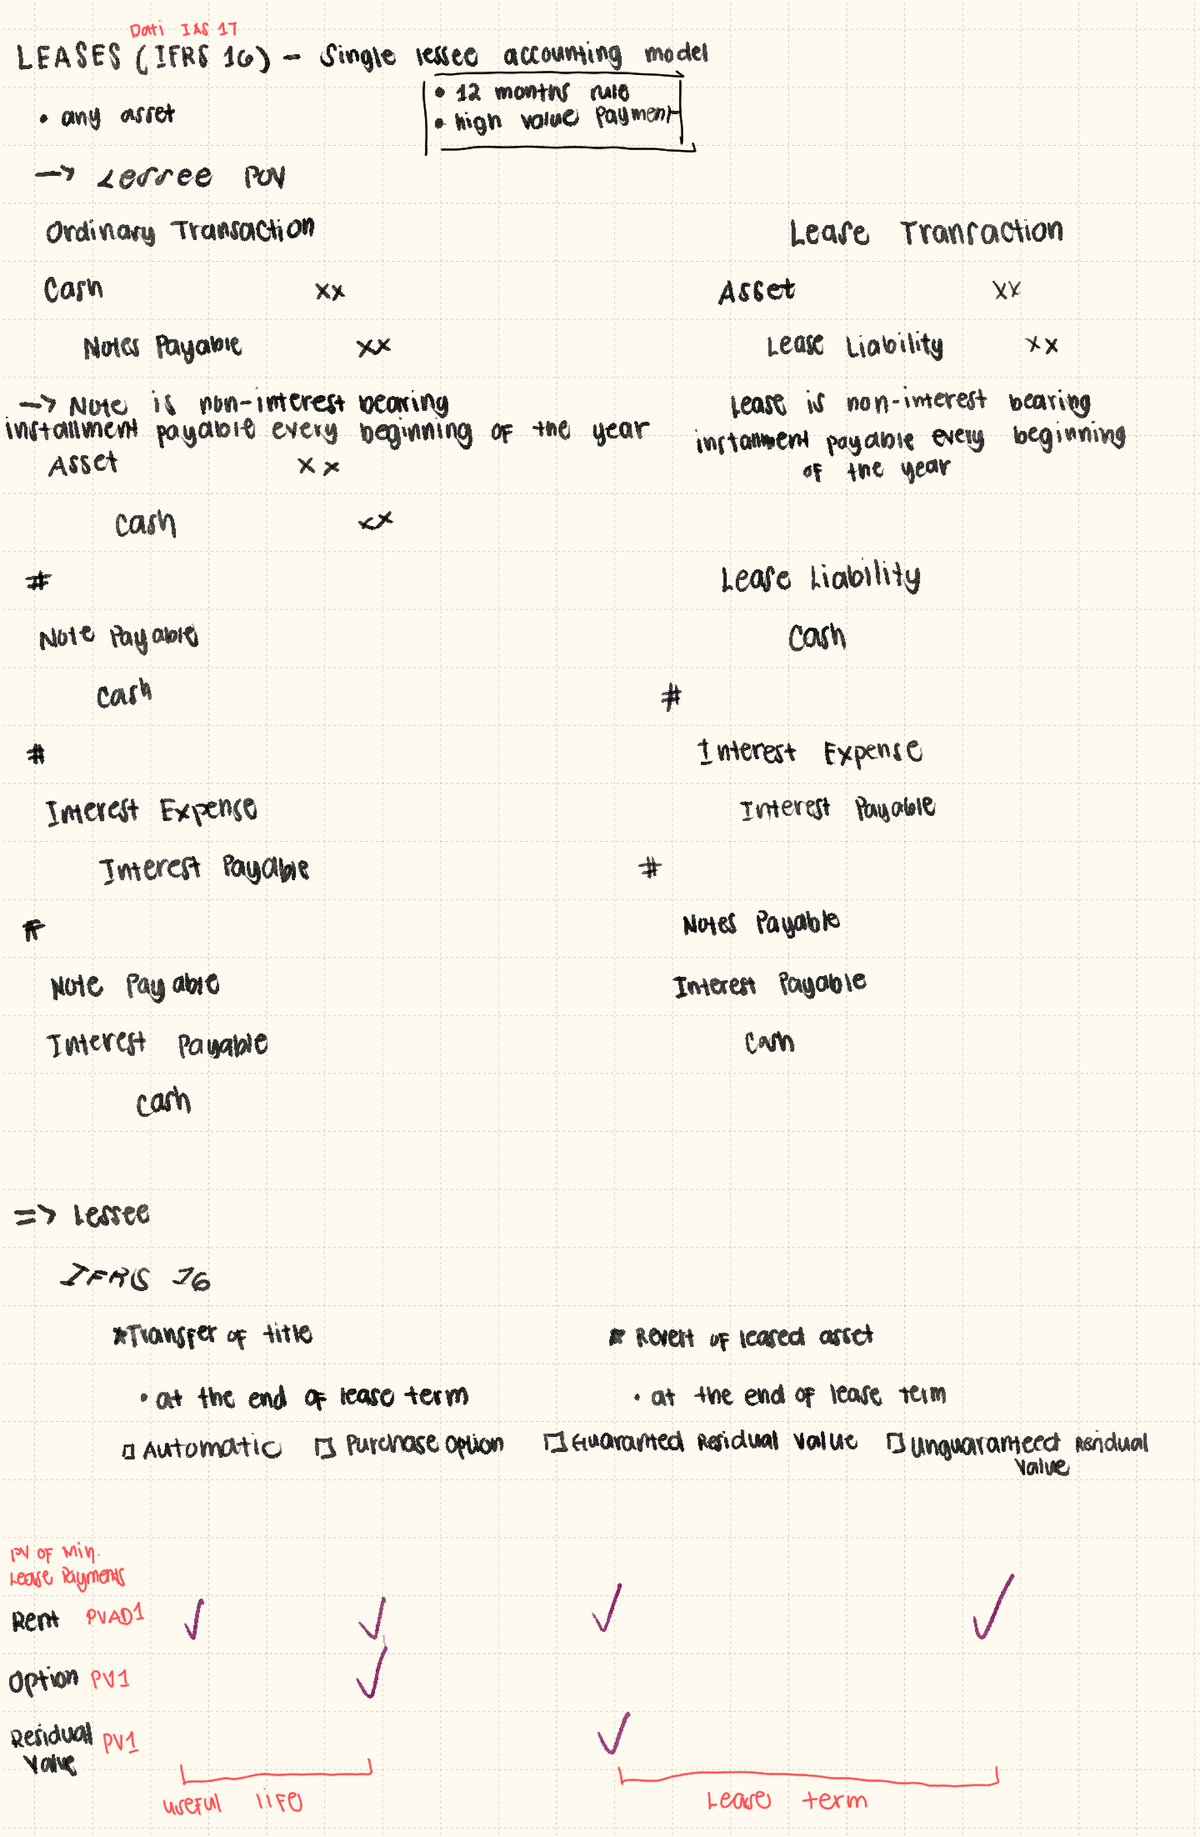 Dati IAS 17
LEASES (IFRS 16) - Single lessee accounting model
• 12 months rule
• high value Payment
• any asset
→ Lessee POV
Ordinary Transaction
Cash xx
Notes Payable xx
→ Note is non-interest bearing
installment payable every beginning of the year
Asset xx
Cash xx
#
Note Payable
Cash
#
Interest Expense
Interest Payable
#
Note Payable
Interest Payable
Cash
Lease Transaction
Asset xx
Lease Liability xx
Lease is non-interest bearing
installment payable every beginning
of the year
Lease Liability
Cash
#
Interest Expense
Interest Payable
#
Notes Payable
Interest Payable
Cash
=> Lessee
IFRS 16
*Transfer of title
• at the end of lease term
□ Automatic □ Purchase Option
* Revert of leased asset
• at the end of lease term
□ Guaranted Residual Value □ Unguaranteed Residual
Value
PV of Min.
Lease Payments
Rent PVAD1 ✓ ✓ ✓ ✓
Option PV1 ✓
Residual
Value PV1 ✓
useful life
Lease term